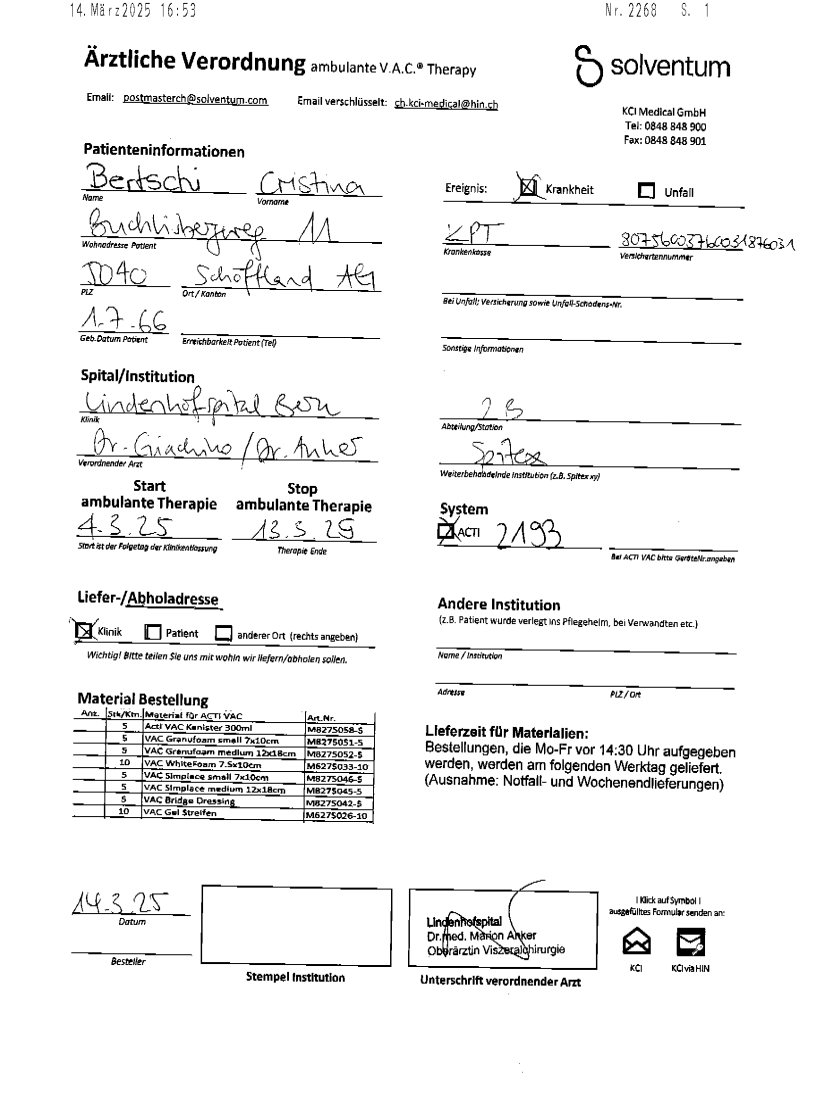 14.März2025 16:53 Nr.2268 S. 1
Ärztliche Verordnung ambulante V.A.C.® Therapy
solventum
Email: postmasterch@solventum.com Email verschlüsselt: ch.kci-medical@hin.ch
KCI Medical GmbH
Tel: 0848 848 900
Fax: 0848 848 901
Patienteninformationen
Bertschi Cristina
Name Vorname
Buchlisbergweg 11
Wohnadresse Patient
5040 Schöftland AG
PLZ Ort/Kanton
1.7.66
Geb.Datum Patient Erreichbarkeit Patient (Tel)
Ereignis: Krankheit Unfall
KPT
Krankenkasse Versichertennummer
Bei Unfall; Versicherung sowie Unfall-Schadens-Nr.
Sonstige Informationen
Spital/Institution
Lindenhofspital Bern
Klinik
Dr. Giachino / Dr. Anker
Verordnender Arzt
2B
Abteilung/Station
Spitex
Weiterbehandelnde Institution (z.B. Spitex xy)
Start Stop
ambulante Therapie ambulante Therapie
4.3.25 13.3.25
Start ist der Folgetag der Klinikentlassung Therapie Ende
System
ACTI 2193
Bei ACTI VAC bitte GeräteNr.angeben
Liefer-/Abholadresse
Klinik Patient anderer Ort (rechts angeben)
Wichtig! Bitte teilen Sie uns mit wohin wir liefern/abholen sollen.
Andere Institution
(z.B. Patient wurde verlegt ins Pflegeheim, bei Verwandten etc.)
Name / Institution
Adresse PLZ / Ort
Material Bestellung
Anz. Stk/Ktn. Material für ACTI VAC Art.Nr.
5 Acti VAC Kanister 300ml M8275058-5
5 VAC Granufoam small 7x10cm M8275051-5
5 VAC Granufoam medium 12x18cm M8275052-5
10 VAC WhiteFoam 7.5x10cm M6275033-10
5 VAC Simplace small 7x10cm M8275046-5
5 VAC Simplace medium 12x18cm M8275045-5
5 VAC Bridge Dressing M8275042-5
10 VAC Gel Streifen M6275026-10
Lieferzeit für Materialien:
Bestellungen, die Mo-Fr vor 14:30 Uhr aufgegeben
werden, werden am folgenden Werktag geliefert.
(Ausnahme: Notfall- und Wochenendlieferungen)
14.3.25
Datum
Besteller
Stempel Institution
Lindenhofspital
Dr.med. Marion Anker
Oberärztin Viszeralchirurgie
Unterschrift verordnender Arzt
! Klick auf Symbol !
ausgefülltes Formular senden an:
KCI KCI via HIN